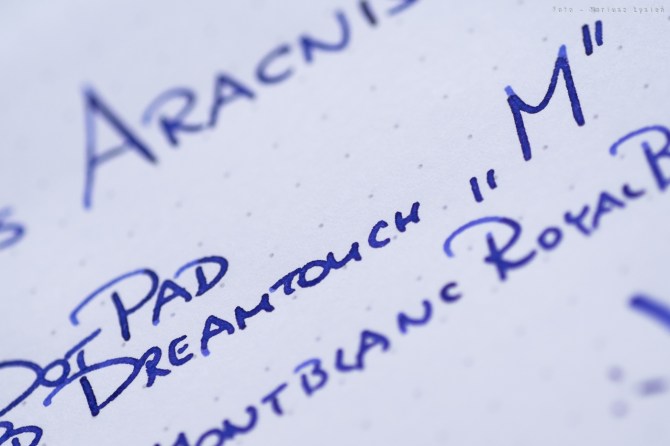 Foto - Mariusz Łysień
ARACNIS
DOT PAD
DREAMTOUCH "M"
MONTBLANC ROYALB